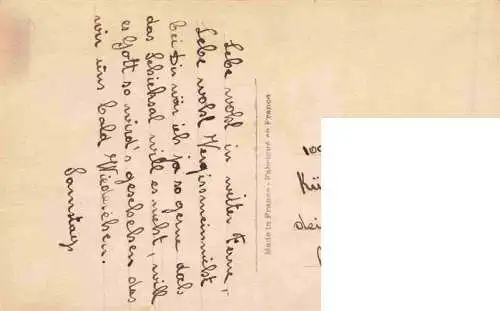 Lebe wohl in weiter Ferne,
Lebe wohl Vergissmeinnicht
bei Dir wär ich ja so gerne doch
das Schicksal will es nicht, will
es Gott so wird's geschehen das
wir uns bald Wiedersehen.
Made in France - Fabriqué en France